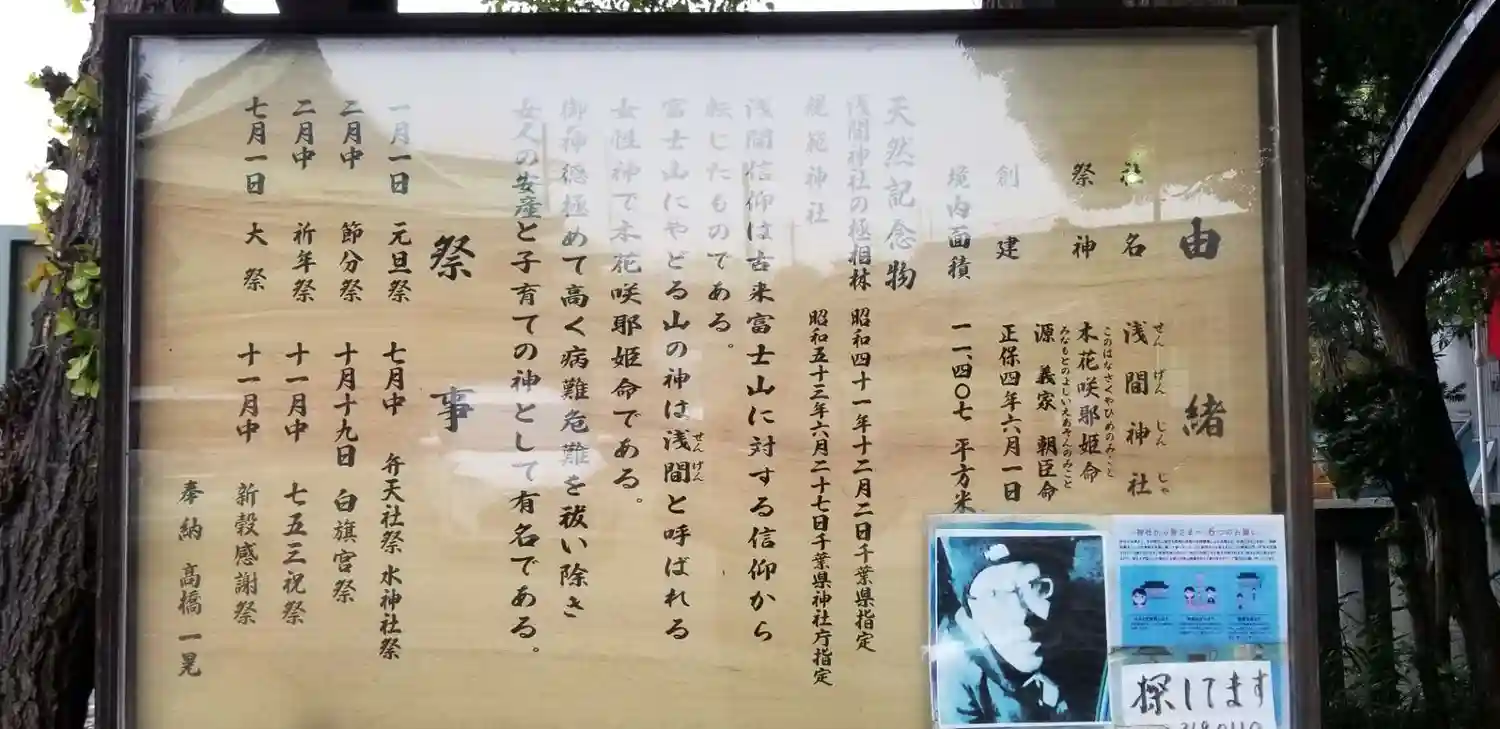 由緒
社名 浅間神社
せんげんじんじゃ
祭神 木花咲耶姫命
このはなさくやひめのみこと
源義家朝臣命
みなもとのよしいえあそんのみこと
創建 正保四年六月一日
境内面積 一一、四〇七平方米
天然記念物
浅間神社の極相林 昭和四十一年十二月二日千葉県指定
規範神社 昭和五十三年六月二十七日千葉県神社庁指定
浅間信仰は古来富士山に対する信仰から
転じたものである。
富士山にやどる山の神は浅間と呼ばれる
せんげん
女性神で木花咲耶姫命である。
御神徳極めて高く病難危難を祓い除き
女人の安産と子育ての神として有名である。
祭事
一月一日 元旦祭 七月中 弁天社祭 水神社祭
二月中 節分祭 十月十九日 白旗宮祭
二月中 祈年祭 十一月中 七五三祝祭
七月一日 大祭 十一月中 新穀感謝祭
奉納 高橋一晃
探してます